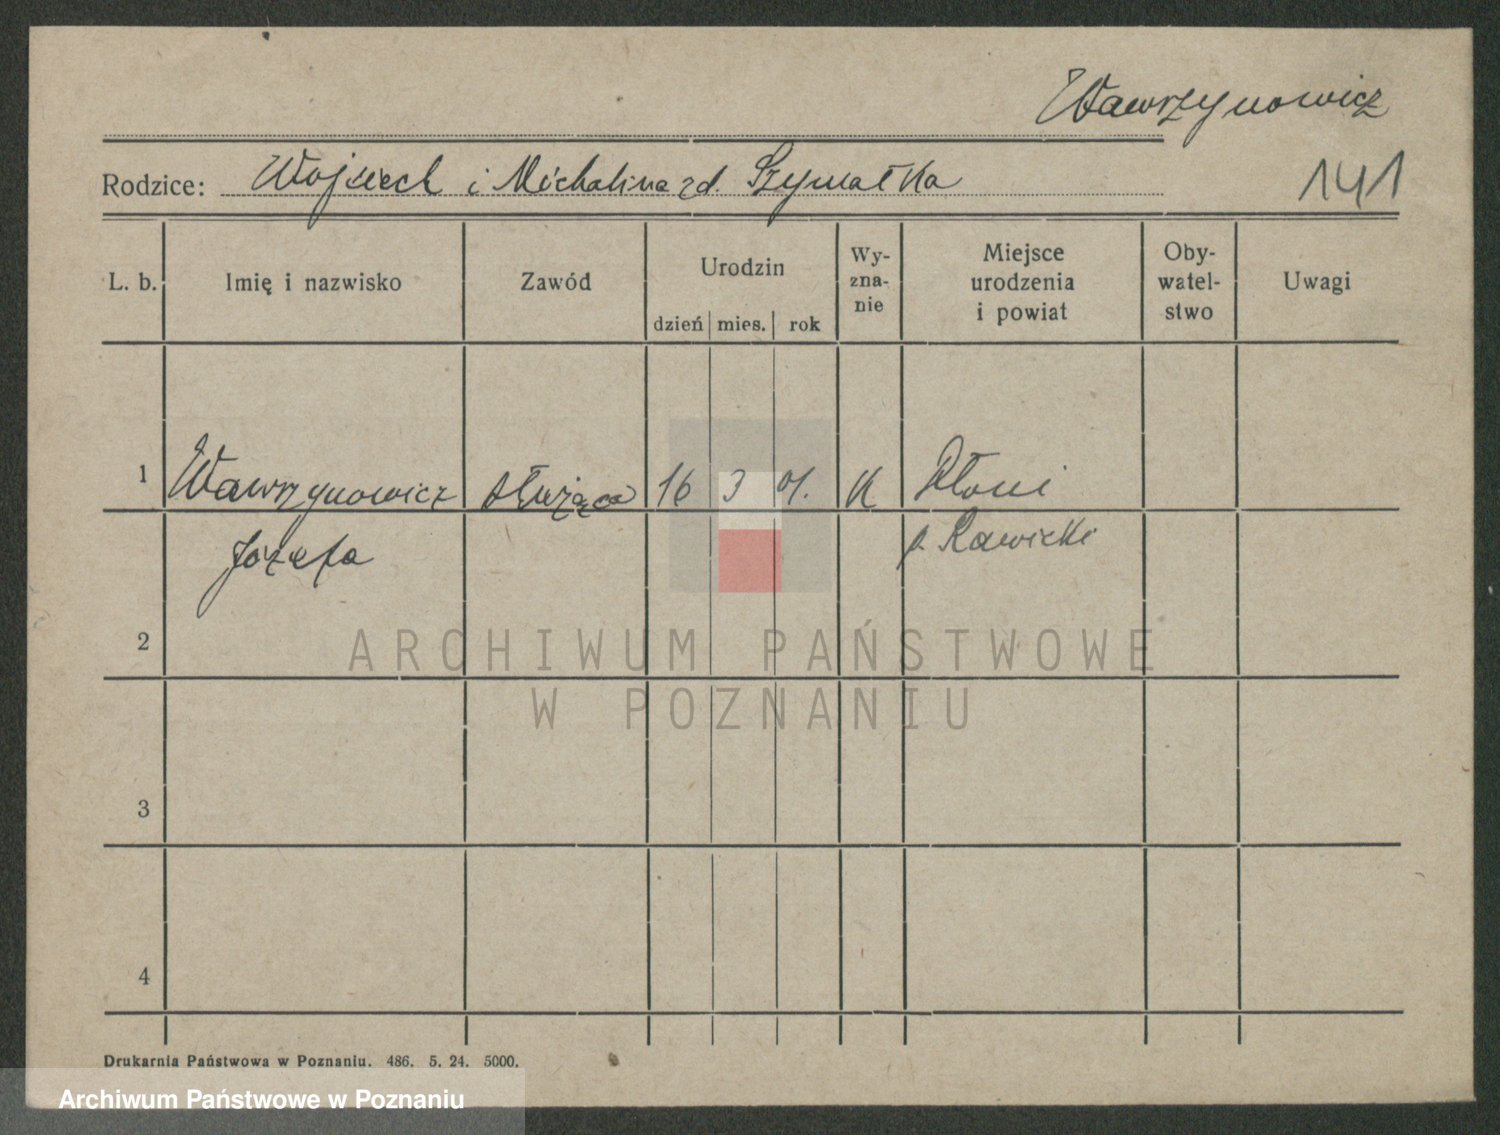 Wawrzynowicz
Rodzice: Wojciech i Michalina zd. Szymałka
141
L. b. Imię i nazwisko Zawód Urodzin dzień mies. rok Wy-zna-nie Miejsce urodzenia i powiat Oby-watel-stwo Uwagi
1 Wawrzynowicz służąca 16 3 01. K Płoni
Józefa p. Rawicki
2
ARCHIWUM PAŃSTWOWE
W POZNANIU
3
4
Drukarnia Państwowa w Poznaniu. 486. 5. 24. 5000.
Archiwum Państwowe w Poznaniu